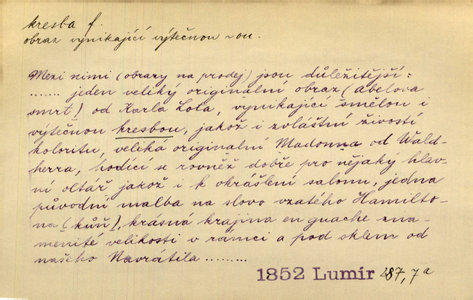 kresba f.
obraz vynikající výtečnou -ou.
Mezi nimi (obrazy na prodej) jsou důležitější:
...... jeden veliký originální obraz (Abelova
smrt) od Karla Lota, vynikající smělou i
výtečnou kresbou, jakož i zvláštní živostí
koloritu, veliká originalní Madonna od Wald-
herra, hodící se rovněž dobře pro nějaký hlav-
ní oltář jakož i k okrášlení salonu, jedna
původní malba na slovo vzatého Hamilto-
na (kůň), krásná krajina en guache zna-
menité velikosti v rámci a pod sklem od
našeho Navrátila .........
1852 Lumír 287,7a